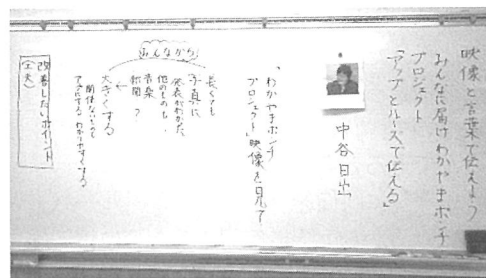 映像と言葉で伝えよう
みんなに届けわかやまポンチ
プロジェクト
「アップとルーズで伝える」
中谷日出
「わかやまポンチ
プロジェクト」映像を見て
みんなから
長くても
写真に
発表がわかった
他のものも、
音楽
新聞?
大きくする
関係ないもので
改善したいポイント
(工夫)